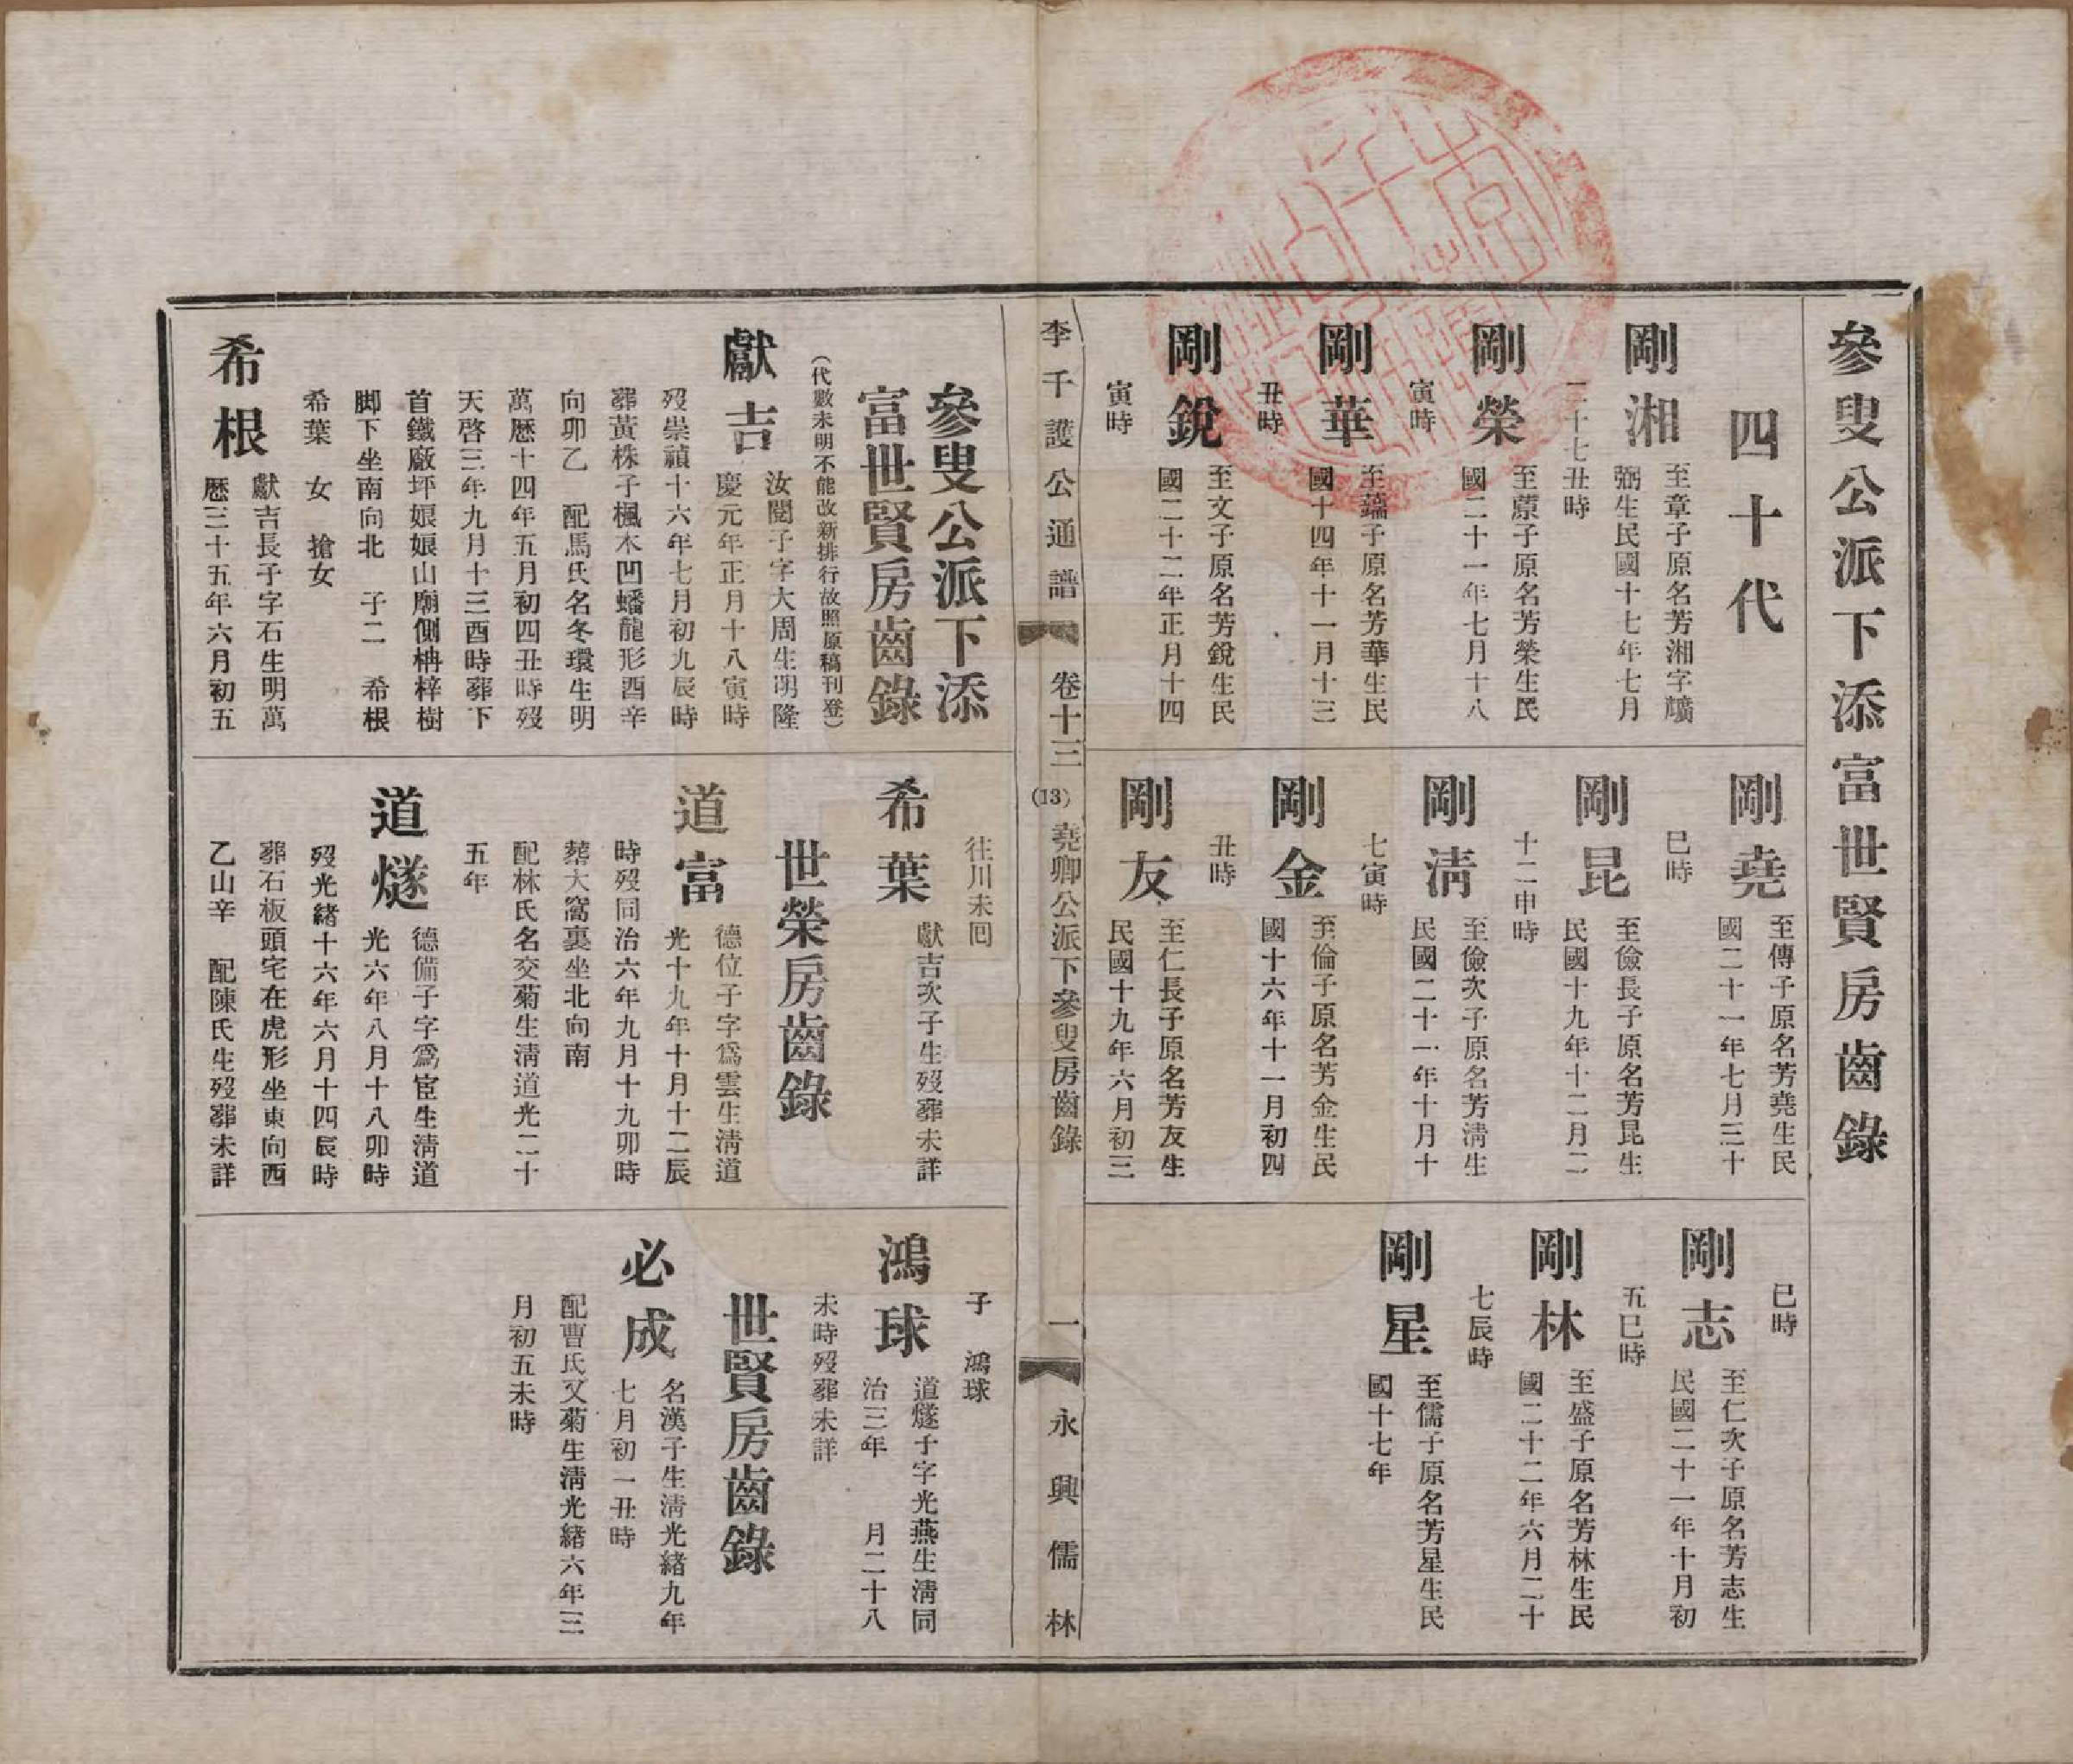 參叟公派下添富世賢房齒錄
四十代
剛湘
至章子原名芳湘字驥
弼生民國十七年七月
二十七丑時
剛榮
至藤子原名芳榮生民
國二十一年七月十八
寅時
剛華
至蘊子原名芳華生民
國十四年十一月十三
丑時
剛銳
至文子原名芳銳生民
國二十二年正月十四
寅時
剛堯
至傳子原名芳堯生民
國二十一年七月三十
巳時
剛昆
至儉長子原名芳昆生
民國十九年十二月二
十二申時
剛淸
至儉次子原名芳淸生
民國二十一年十月十
七寅時
剛金
至倫子原名芳金生民
國十六年十一月初四
丑時
剛友
至仁長子原名芳友生
民國十九年六月初三
巳時
剛志
至仁次子原名芳志生
民國二十一年十月初
五巳時
剛林
至盛子原名芳林生民
國二十二年六月二十
七辰時
剛星
至儒子原名芳星生民
國十七年
李千護公通譜 卷十三 (13) 堯卿公派下參叟房齒錄 一 永興儒林
參叟公派下添
富世賢房齒錄
(代數未明不能改新排行故照原稿刊登)
獻吉
汝閏子字大周生明隆
慶元年正月十八寅時
歿崇禎十六年七月初九辰時
葬黃株子楓木凹蟠龍形酉辛
向卯乙 配馬氏名冬環生明
萬曆十四年五月初四丑時歿
天啓三年九月十三酉時葬下
首鐵廠坪娘娘山廟側柟梓樹
脚下坐南向北 子二 希根
希葉 女 搶女
希根
獻吉長子字石生明萬
曆三十五年六月初五
往川未囘
希葉
獻吉次子生歿葬未詳
世榮房齒錄
道富
德位子字爲雲生淸道
光十九年十月十二辰
時歿同治六年九月十九卯時
葬大窩裏坐北向南
配林氏名交菊生淸道光二十
五年
道燧
德備子字爲宦生淸道
光六年八月十八卯時
歿光緖十六年六月十四辰時
葬石板頭宅在虎形坐東向西
乙山辛 配陳氏生歿葬未詳
子 鴻球
鴻球
道燧子字光燕生淸同
治三年 月二十八
未時歿葬未詳
世賢房齒錄
必成
名漢子生淸光緖九年
七月初一丑時
配曹氏又菊生淸光緖六年三
月初五未時